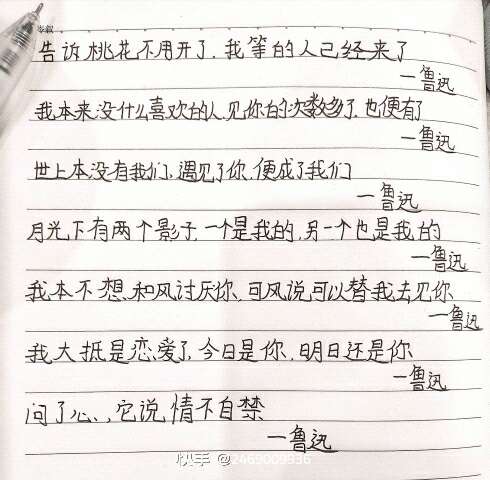 告诉桃花不用开了，我等的人已经来了
—鲁迅
我本来没什么喜欢的人，见你的次数多了，也便有了
—鲁迅
世上本没有我们、遇见了你、便成了我们
—鲁迅
月光下有两个影子，一个是我的，另一个也是我的
—鲁迅
我本不想和风讨厌你、可风说可以替我去见你
—鲁迅
我大抵是恋爱了，今日是你，明日还是你
—鲁迅
问了心、它说情不自禁
—鲁迅
快手 @2469009936